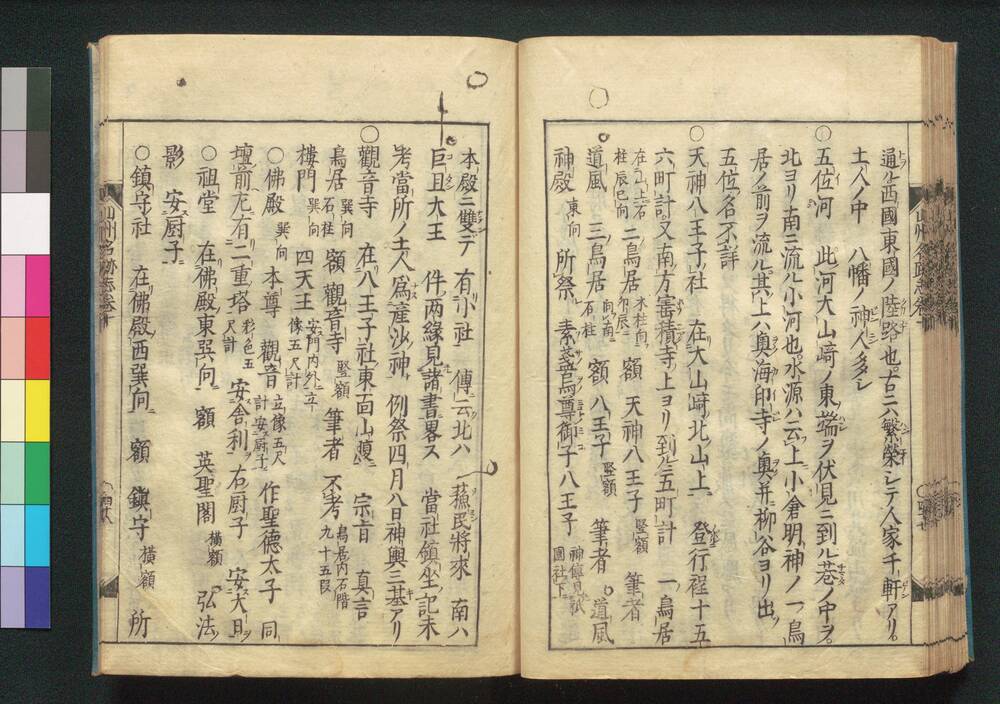 通ル西國東國ノ陸路也古ニハ繁榮シテ人家千軒アリ
土人ノ中 八幡ノ神人多シ
○五位河 此河大山崎ノ東端ヲ伏見ニ到ル巷ノ中ヲ
北ヨリ南ニ流ル小河也水源ハ云上ニ小倉明神ノ一鳥
居ノ前ヲ流ル其上ハ奥海印寺ノ奥并柳谷ヨリ出
五位名不詳
○天神八王子社 在大山崎北山上 登行程十五
六町計又南方寳積寺上ヨリ到ル五町計 一鳥居
在山上石柱辰巳向 二鳥居 木柱向卯辰 額 天神八王子 竪額 筆者
道風 三鳥居 向南石柱 額 八王子 竪額 筆者 道風
神殿 東向 所祭 素戔烏尊御子八王子 神傳見祇園社下
本殿ニ雙デ有小社 傳云北ハ蘓民將來 南ハ
巨且大王 件両縁見諸書畧ス 當社鎮坐記未
考當所ノ土人為産沙神 例祭四月八日神輿三基アリ
○觀音寺 在八王子社東百山腹 宗旨 真言
鳥居 巽向石柱 額 觀音寺 竪額 筆者 不考 鳥居内石階九十五段
樓門 巽向 四天王 安門内外立像五尺計
○佛殿 巽向 本尊 觀音 立像五尺計安厨子 作聖德太子 同
壇前左有二重塔 彩色五尺計 安舍利 右厨子 安大日
○祖堂 在佛殿東巽向 額 英聖閣 横額 弘法
影 安厨子
○鎮守社 在佛殿西巽向 額 鎮守 横額 所
山州名跡志卷